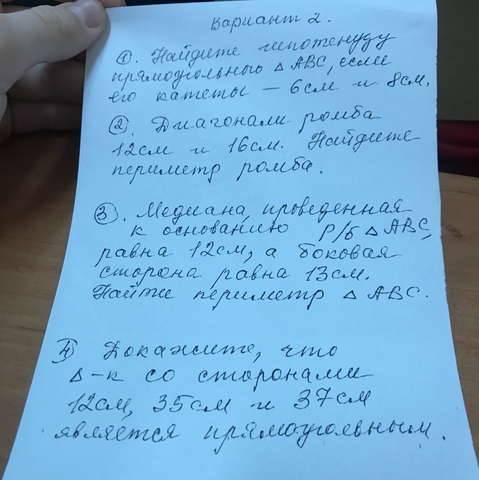 Вариант 2.
①. Найдите гипотенузу
прямоугольного △ ABC, если
его катеты – 6см и 8см.
②. Диагонали ромба
12см и 16см. Найдите
периметр ромба.
③. Медиана, проведенная
к основанию р/б △ ABC,
равна 12см, а боковая
сторона равна 13см.
Найти периметр △ ABC.
4) Докажите, что
△-к со сторонами
12см, 35см и 37см
является прямоугольным.